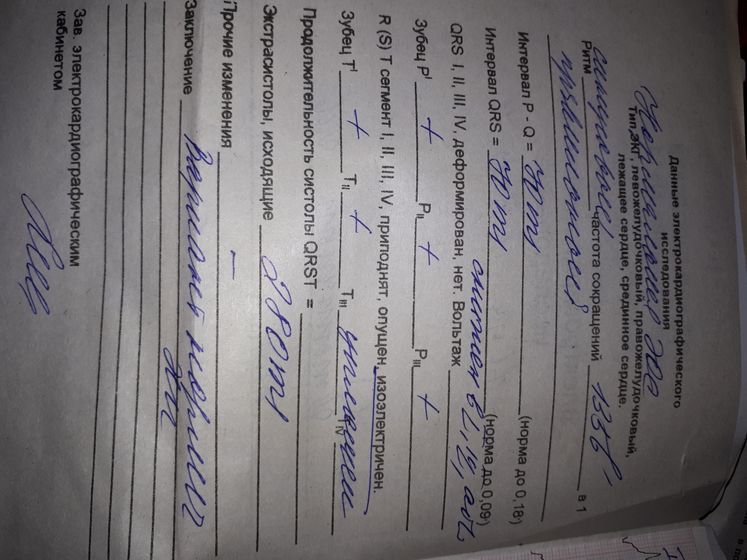 Данные электрокардиографического
исследования
Нормальная ЭОС
Тип ЭКГ, левожелудочковый, правожелудочковый,
лежащее сердце, срединное сердце.
Ритм синусовый частота сокращений 138 в 1
правильный
Интервал P - Q = (норма до 0,18)
Интервал QRS = (норма до 0,09)
QRS I, II, III, IV, деформирован, нет. Вольтаж снижен в
Зубец PI + PII + PIII +
R (S) T сегмент I, II, III, IV, приподнят, опущен, изоэлектричен.
Зубец TI + TII + TIII уплощен TIV
Продолжительность систолы QRST =
Экстрасистолы, исходящие
Прочие изменения —
Заключение Вариант нормы
Зав. электрокардиографическим
кабинетом